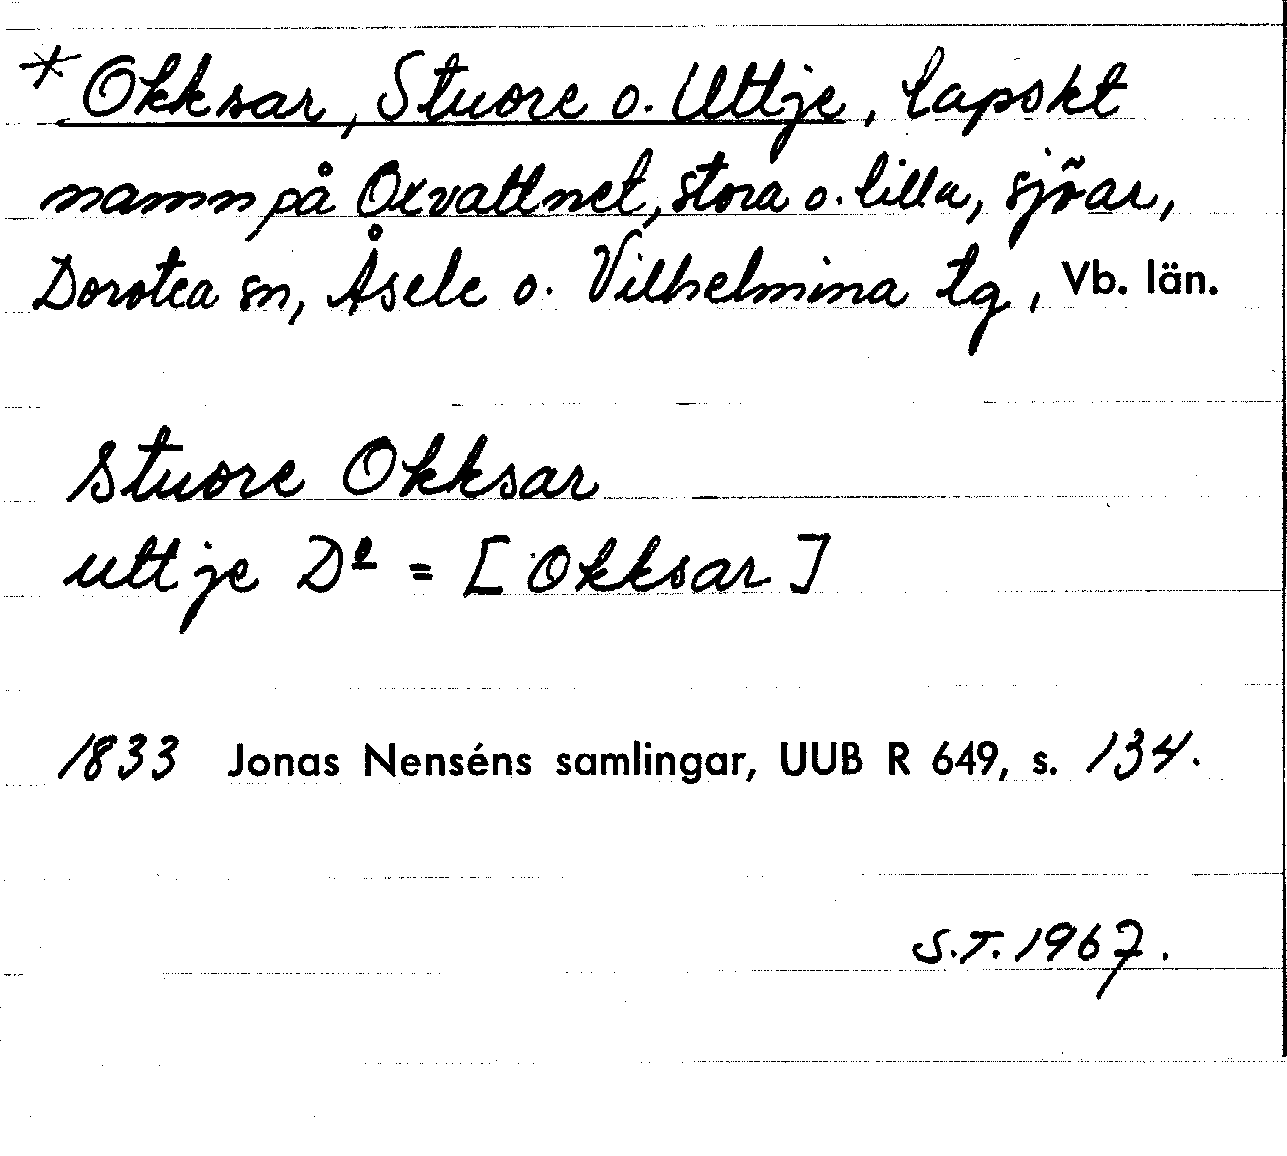 * Okksar, Stuore o. Uttje, lapskt
namn på Oxvattnet, stora o. lilla, sjöar,
Dorotea sn, Åsele o. Vilhelmina tg, Vb. län.
Stuore Okksar
uttje Dº = [Okksar]
1833 Jonas Nenséns samlingar, UUB R 649, s. 134.
S.T. 1967.